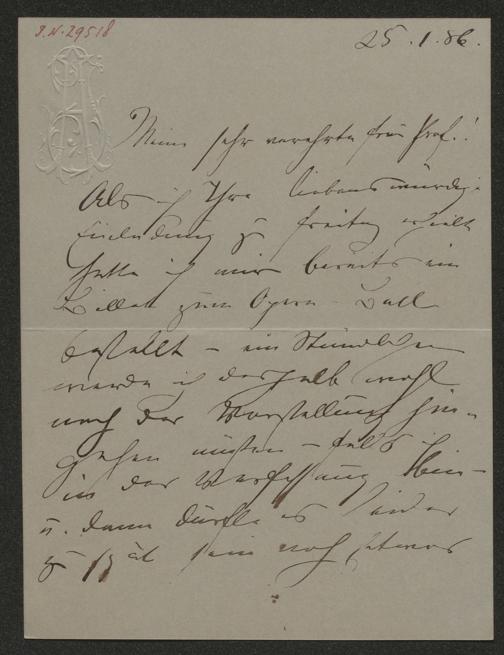 I.N. 29518
25.1.86.
Meine sehr verehrte Frau Prof.!
Als ich Ihre liebenswürdige
Einladung zu Freitag erhielt
hatte ich mir bereits ein
Billet zum Opern-Ball
bestellt – ein Stündchen
werde ich deshalb wohl
nach der Vorstellung hin-
gehen müssen – falls ich
in der Verfassung bin –
u. dann dürfte es leider
zu spät sein noch etwas